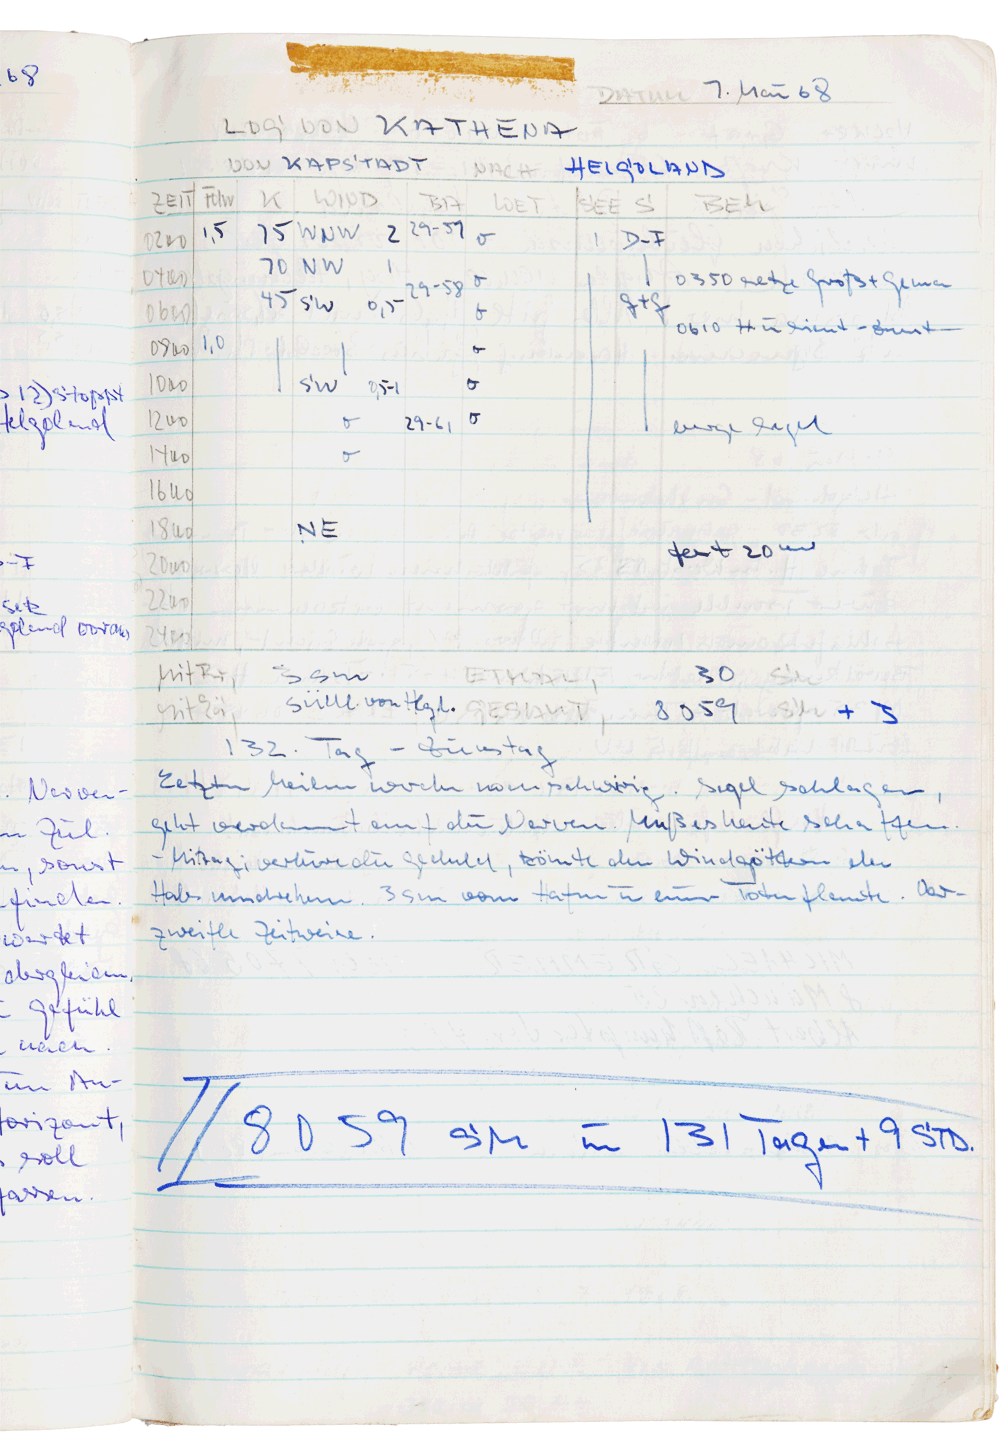 68
12) stoppt
Helgoland
-F
setz
goland voraus
. Nerven-
Zül.
, sonst
finden.
wartet
dergleichen.
gefühl
nach.
um An-
Horizont,
soll
fassen.
DATUM 7. Mai 68
LOG VON KATHENA
VON KAPSTADT NACH HELGOLAND
ZEIT Fdw K WIND BA WET SEE S BEM
0200 1,5 75 WNW 2 29-57 σ 1 D-F
0400 70 NW 1 29-58 σ | 0350 setze Groß + Genua
0600 45 SW 0,5 σ g+g 0610 Hü in Sicht
0800 1,0 | | σ
1000 | SW 0,5-1 σ
1200 σ 29-61 σ berge Segel
1400 σ
1600
1800 NE
fest 2000
2000
2200
2400
MitBr, 3 sm ETMAL, 30 SM
MitLä, südl. von Hlgl. GESAMT, 8059 SM + 3
132. Tag - Dienstag
Letzten Meilen werden noch schwierig. Segel schlagen,
geht verdammt auf die Nerven. Muß es heute schaffen.
- Mittag, verliere die Geduld, könnte den Windgöttern den
Hals umdrehen. 3 sm vom Hafen u eine Totenflaute. Ver-
zweifle zeitweise.
8059 SM in 131 Tagen + 9 STD.